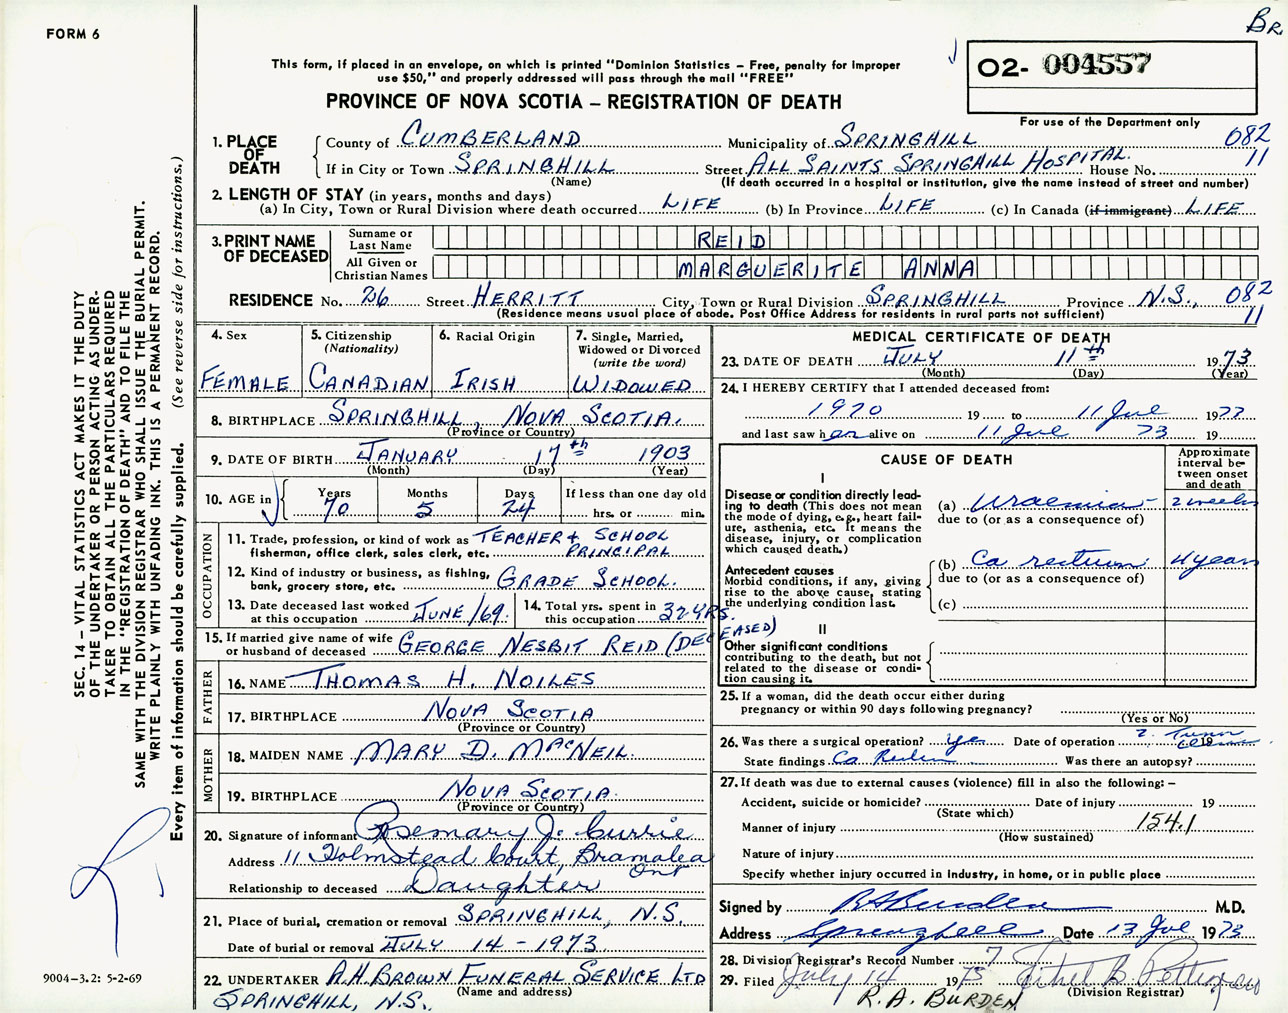 FORM 6
BR
This form, if placed in an envelope, on which is printed "Dominion Statistics – Free, penalty for improper
use $50," and properly addressed will pass through the mail "FREE"
PROVINCE OF NOVA SCOTIA – REGISTRATION OF DEATH
02- 004557
For use of the Department only
1. PLACE OF DEATH
County of CUMBERLAND Municipality of SPRINGHILL 082
If in City or Town SPRINGHILL Street ALL SAINTS SPRINGHILL HOSPITAL. House No. 11
(Name) (If death occurred in a hospital or institution, give the name instead of street and number)
2. LENGTH OF STAY (in years, months and days)
(a) In City, Town or Rural Division where death occurred LIFE (b) In Province LIFE (c) In Canada (if immigrant) LIFE
3. PRINT NAME OF DECEASED
Surname or Last Name REID
All Given or Christian Names MARGUERITE ANNA
RESIDENCE No. 26 Street HERRITT City, Town or Rural Division SPRINGHILL Province N.S., 082
(Residence means usual place of abode. Post Office Address for residents in rural parts not sufficient) 11
4. Sex FEMALE
5. Citizenship (Nationality) CANADIAN
6. Racial Origin IRISH
7. Single, Married, Widowed or Divorced (write the word) WIDOWED
8. BIRTHPLACE SPRINGHILL, NOVA SCOTIA.
(Province or Country)
9. DATE OF BIRTH JANUARY 17th 1903
(Month) (Day) (Year)
10. AGE in Years 70 Months 5 Days 24 If less than one day old hrs. or min.
OCCUPATION
11. Trade, profession, or kind of work as TEACHER & SCHOOL
fisherman, office clerk, sales clerk, etc. PRINCIPAL
12. Kind of industry or business, as fishing,
bank, grocery store, etc. GRADE SCHOOL.
13. Date deceased last worked at this occupation JUNE/69.
14. Total yrs. spent in this occupation 32 YRS.
15. If married give name of wife
or husband of deceased GEORGE NESBIT REID (DECEASED)
FATHER
16. NAME THOMAS H. NOILES
17. BIRTHPLACE NOVA SCOTIA
(Province or Country)
MOTHER
18. MAIDEN NAME MARY D. MacNEIL.
19. BIRTHPLACE NOVA SCOTIA.
(Province or Country)
20. Signature of informant Rosemary J. Currie
Address 11 Holmstead Court, Bramalea Ont
Relationship to deceased Daughter
21. Place of burial, cremation or removal SPRINGHILL, N.S.
Date of burial or removal JULY 14 - 1973
22. UNDERTAKER A.H. BROWN FUNERAL SERVICE LTD
(Name and address)
SPRINGHILL, N.S.
MEDICAL CERTIFICATE OF DEATH
23. DATE OF DEATH JULY 11th 1973
(Month) (Day) (Year)
24. I HEREBY CERTIFY that I attended deceased from:
1970 19 to 11 Jul 1973
and last saw her alive on 11 Jul 73 19
CAUSE OF DEATH
Approximate interval between onset and death
I
Disease or condition directly leading to death (This does not mean the mode of dying, e.g., heart failure, asthenia, etc. It means the disease, injury, or complication which caused death.)
(a) Uraemia 2 weeks
due to (or as a consequence of)
Antecedent causes
Morbid conditions, if any, giving rise to the above cause, stating the underlying condition last.
(b) Ca rectum 4 years
due to (or as a consequence of)
(c)
II
Other significant conditions
contributing to the death, but not related to the disease or condition causing it.
25. If a woman, did the death occur either during
pregnancy or within 90 days following pregnancy?
(Yes or No)
26. Was there a surgical operation? yes Date of operation 19
State findings Ca Rectum Was there an autopsy?
27. If death was due to external causes (violence) fill in also the following: –
Accident, suicide or homicide? Date of injury 19
(State which)
Manner of injury 154.1
(How sustained)
Nature of injury
Specify whether injury occurred in industry, in home, or in public place
Signed by R A Burden M.D.
Address Springhill Date 13 Jul 1973
28. Division Registrar's Record Number 7
29. Filed July 14 1973 Ethel B.
(Division Registrar)
R.A. BURDEN
SEC. 14 – VITAL STATISTICS ACT MAKES IT THE DUTY
OF THE UNDERTAKER OR PERSON ACTING AS UNDER-
TAKER TO OBTAIN ALL THE PARTICULARS REQUIRED
IN THE "REGISTRATION OF DEATH" AND TO FILE THE
SAME WITH THE DIVISION REGISTRAR WHO SHALL ISSUE THE BURIAL PERMIT.
WRITE PLAINLY WITH UNFADING INK. THIS IS A PERMANENT RECORD.
Every item of information should be carefully supplied. (See reverse side for instructions.)
9004–3.2: 5-2-69